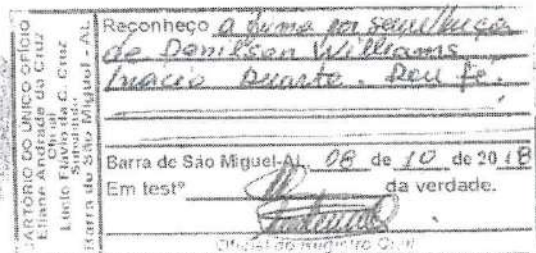 CARTÓRIO DO ÚNICO OFÍCIO
Eliane Andrade da Cruz
Oficial
Lucio Flávio da C. Cruz
Substituto
Barra de São Miguel - AL
Reconheço a firma por semelhança
de Denilson Williams
Inácio Duarte. Dou fé.
Barra de São Miguel-AL, 08 de 10 de 2018
Em testº da verdade.
Oficial do Registro Civil